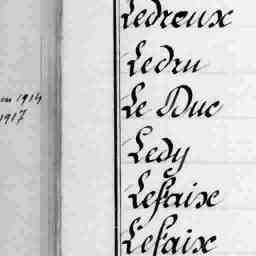 Ledreux
Ledru
en 1914
Le Duc
1917
Ledy
Lefaix
Lefaix